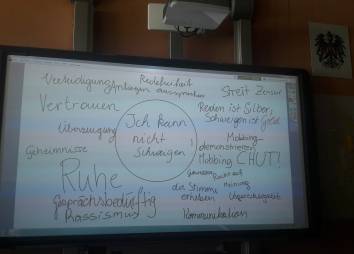 Verteidigung
Redefreiheit
Anliegen aussprechen
Streit Zensur
Vertrauen
Reden ist Silber,
Schweigen ist Gold
Überzeugung
Ich kann
nicht
schweigen
Mobbing
demonstrieren
Geheimnisse
Mobbing CHUT!
Ruhe
Recht auf
Meinung
die Stimme
erheben
gesprächsbedürftig
Ungerechtigkeit
Rassismus
Kommunikation